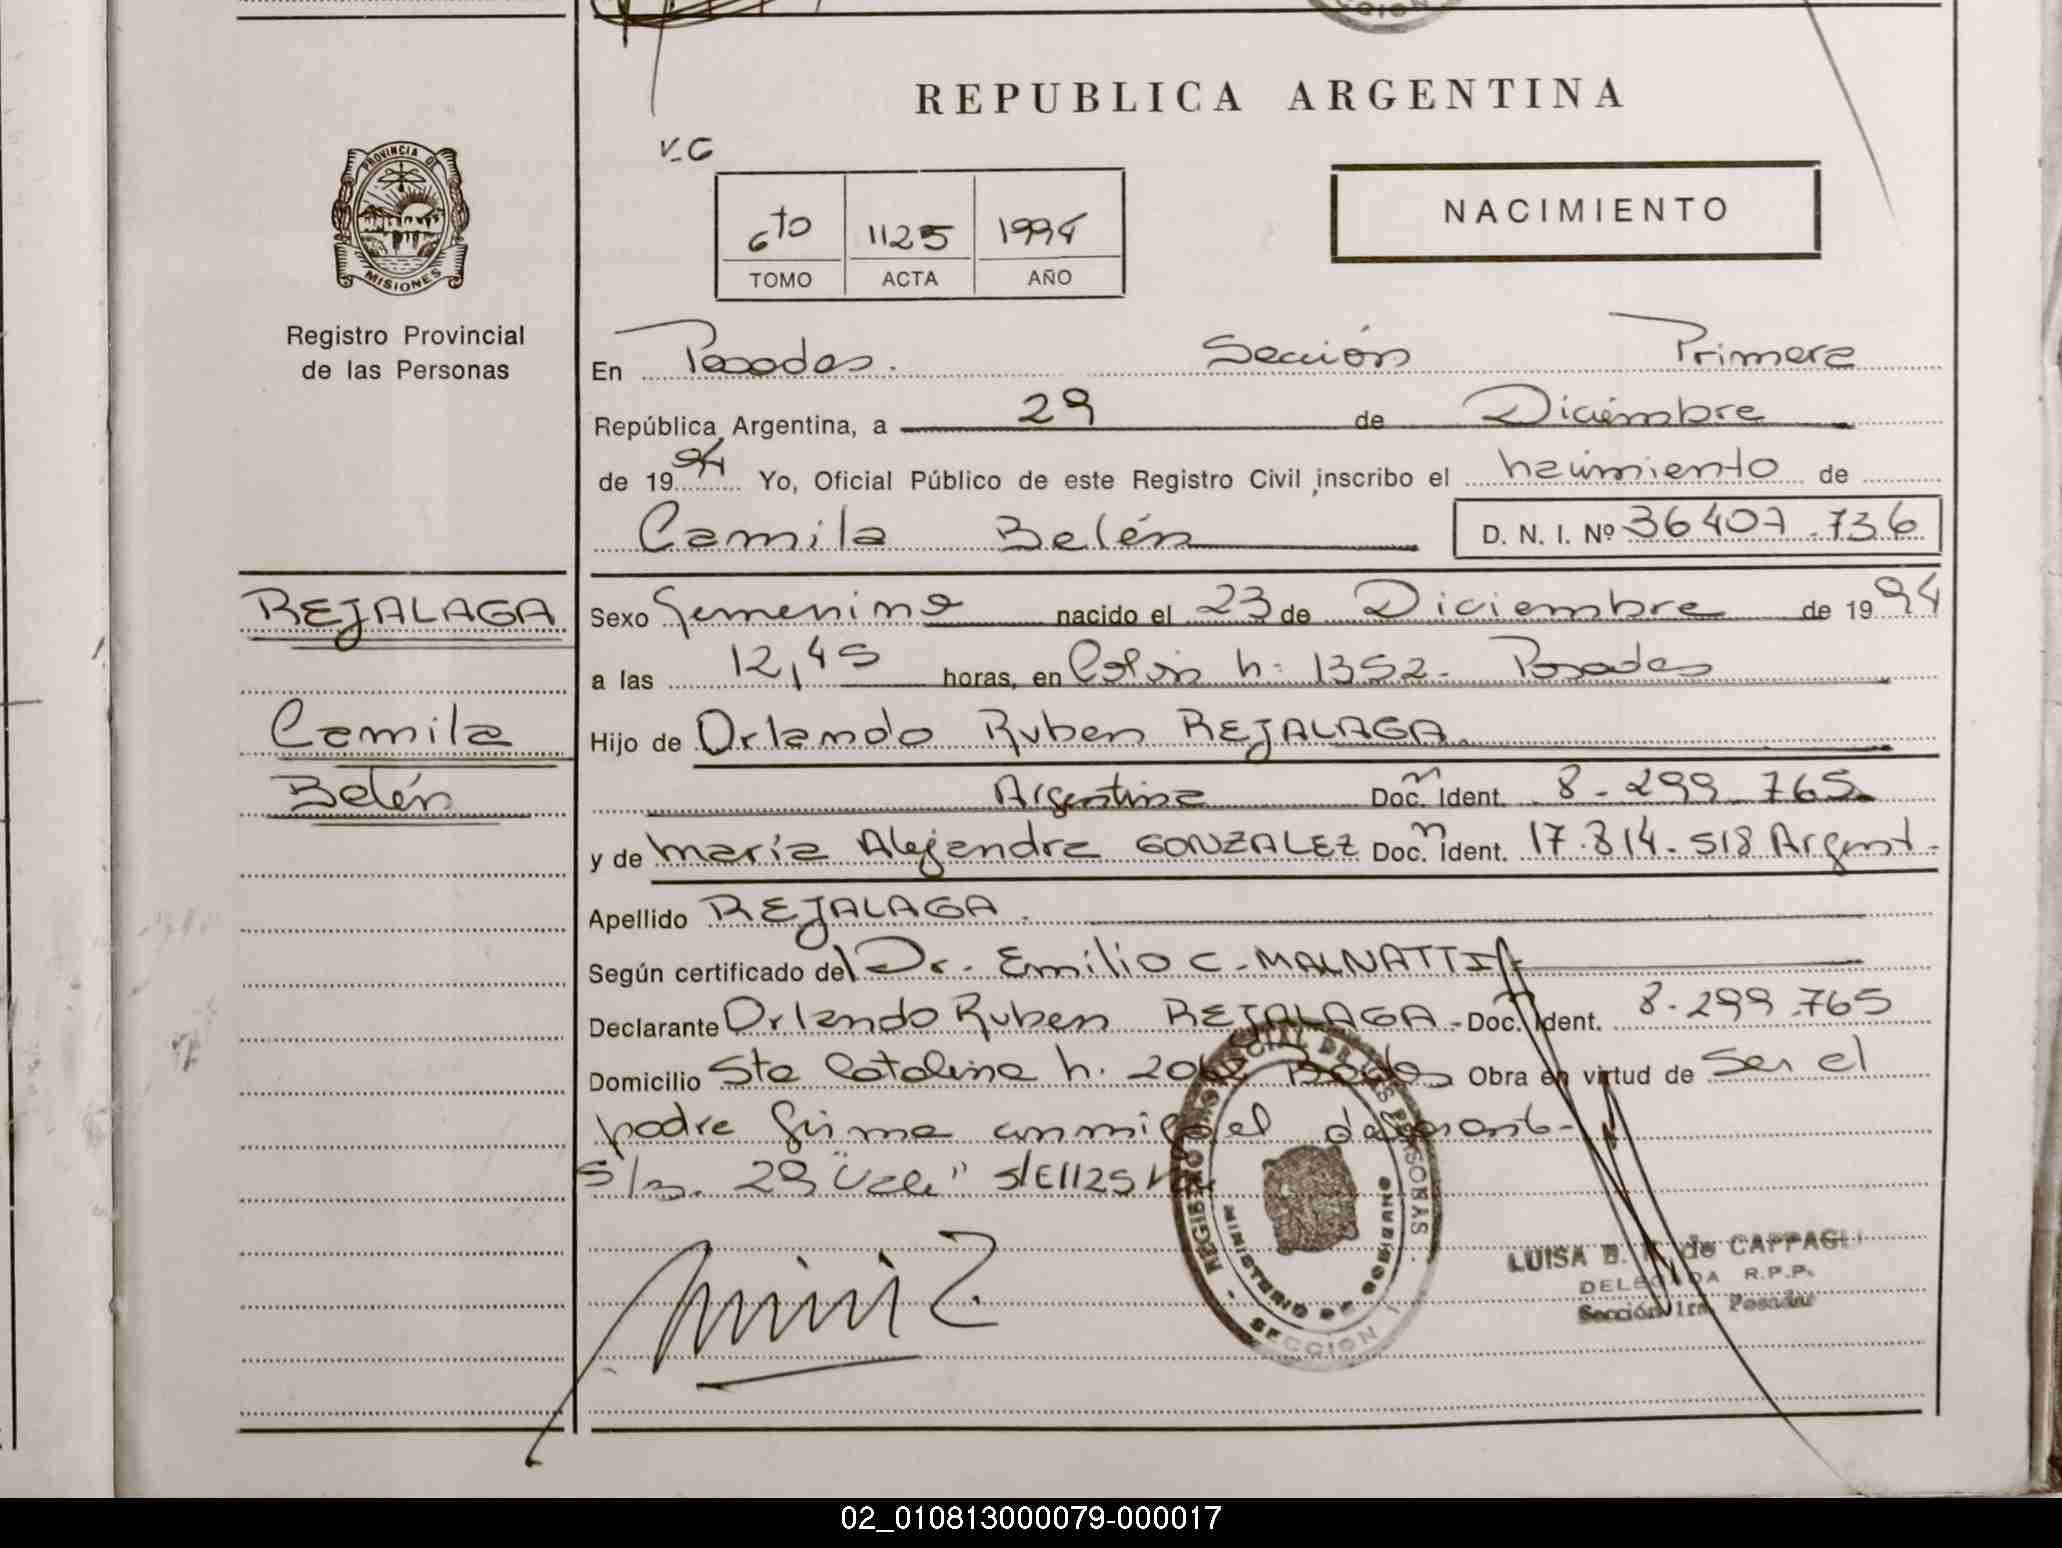 REPUBLICA ARGENTINA
V_G
NACIMIENTO
6to 1125 1994
TOMO ACTA AÑO
PROVINCIA DE
MISIONES
Registro Provincial
de las Personas
En Posadas. Sección Primera
República Argentina, a 29 de Diciembre
de 1994 Yo, Oficial Público de este Registro Civil inscribo el nacimiento de
Camila Belén D. N. I. Nº 36407.736
REJALAGA
Camila
Belén
Sexo Femenino nacido el 23 de Diciembre de 1994
a las 12,45 horas, en Colón n: 1352- Posadas
Hijo de Orlando Ruben REJALAGA
Argentina Doc. Ident. 8-299.765
y de María Alejandra GONZALEZ Doc. Ident. 17.814.518 Argent.
Apellido REJALAGA.
Según certificado del Dr. Emilio C. MALNATTI
Declarante Orlando Ruben REJALAGA - Doc. Ident. 8.299.765
Domicilio Sta Catalina n. Obra en virtud de Ser el
padre firma conmigo el
S/r. 29 "Vale" S/E1125
REGISTRO PROVINCIAL DE LAS PERSONAS
MINISTERIO DE GOBIERNO
SECCION 1
LUISA B. de CAPPAGLI
DELEGADA R.P.P.
Sección 1ra. Posadas
02_010813000079-000017